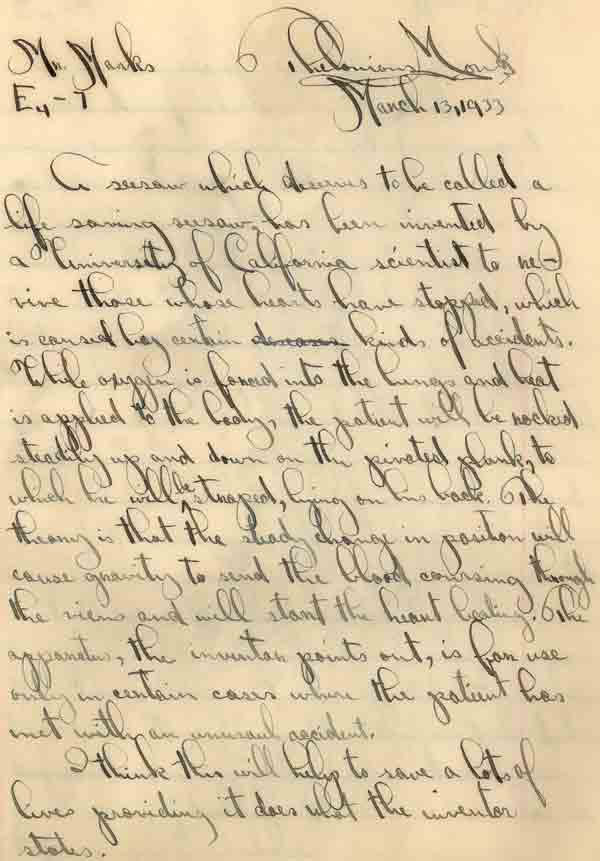 Mr. Marks Thelonious Monk
E4-7 March 13, 1933
A seesaw which deserves to be called a
life saving seesaw, has been invented by
a University of California scientist to re-
vive those whose hearts have stopped, which
is caused by certain diseases kinds of accidents.
While oxygen is forced into the lungs and heat
is applied to the body, the patient will be rocked
steadily up and down on the pivoted plank, to
which he will be straped, lying on his back. The
theory is that the steady change in position will
cause gravity to send the blood coursing through
the viens and will start the heart beating. The
apparatus, the inventor points out, is for use
only in certain cases where the patient has
met with an unusaul accident.
I think this will help to save a lots of
lives providing it does what the inventor
states.